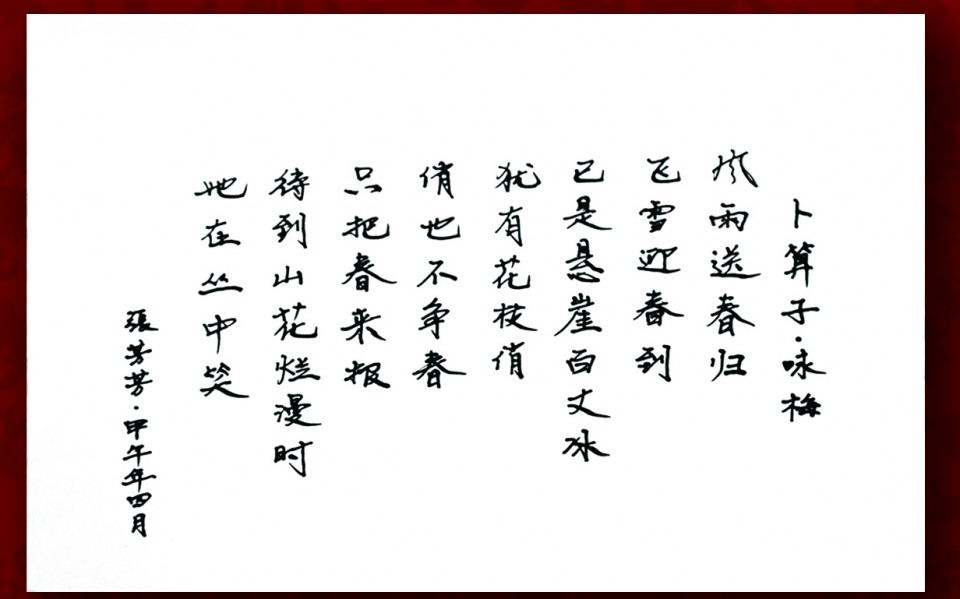 卜算子·咏梅
风雨送春归
飞雪迎春到
已是悬崖百丈冰
犹有花枝俏
俏也不争春
只把春来报
待到山花烂漫时
她在丛中笑
張芳芳·甲午年四月